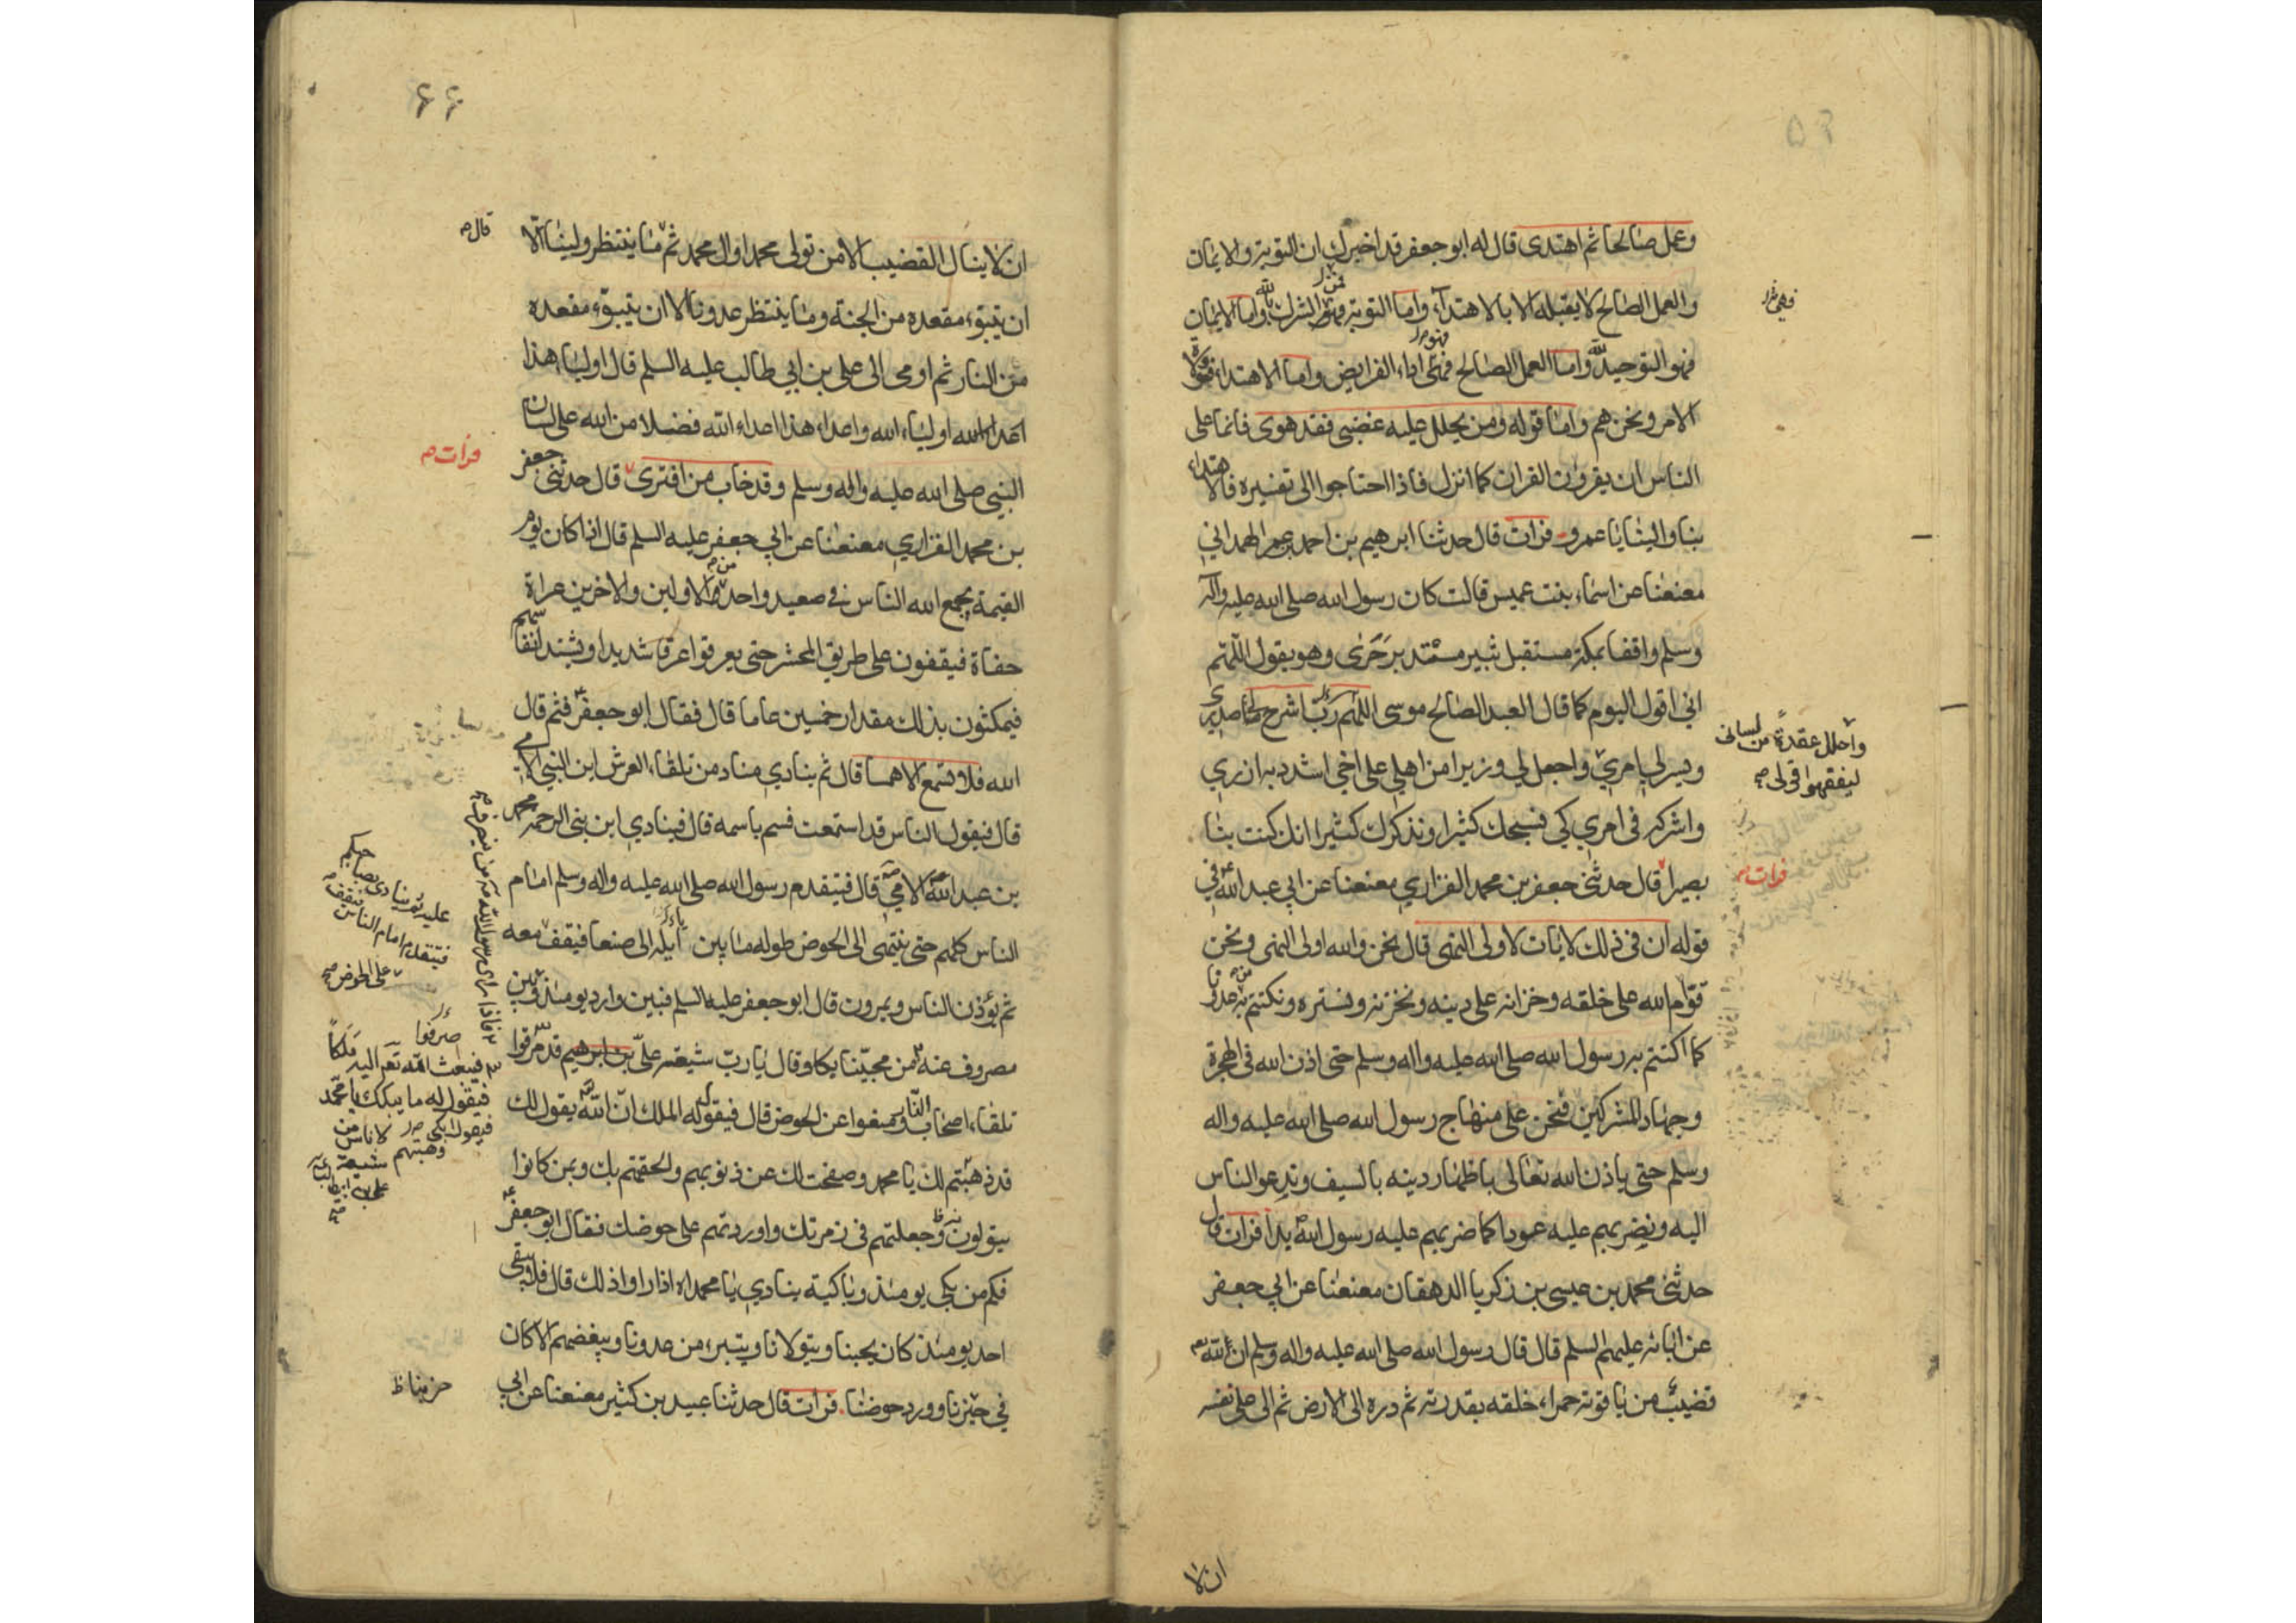 وعمل صالحا ثم اهتدى قال له ابو جعفر قد اخبرك ان التوبة والايمان
والعمل الصالح لا يقبله الا بالاهتداء واما التوبة فمن الشرك بالله واما الايمان
فهو التوحيد لله واما العمل الصالح فهو اداء الفرايض واما الاهتداء فبولاة
الامر ونحن هم واما قوله ومن يحلل عليه غضبي فقد هوى فانما على
الناس ان يقرؤن القران كما انزل فاذا احتاجوا الى تفسيره فالاهتداء
بنا والينا يا عمرو فرات قال حدثنا ابرهيم بن احمد بن عمر الهمداني
معنعنا عن اسماء بنت عميس قالت كان رسول الله صلى الله عليه واله
وسلم واقفا بمكة مستقبل ثبير مستدبر حرى وهو يقول اللهم
اني اقول اليوم كما قال العبد الصالح موسى اللهم رب اشرح لي صدري
ويسر لي امري واجعل لي وزيرا من اهلي علي اخي اشدد به ازري
واشركه في امري كي نسبحك كثيرا ونذكرك كثيرا انك كنت بنا
بصيرا قال حدثني جعفر بن محمد الفزاري معنعنا عن ابي عبد الله في
قوله ان في ذلك لايات لاولى النهى قال نحن والله اولى النهى ونحن
قوام الله على خلقه وخزانه على دينه ونخزنه ونستره ونكتتم به من عدونا
كما اكتتم به رسول الله صلى الله عليه واله وسلم حتى اذن الله في الهجرة
وجهاد المشركين فنحن على منهاج رسول الله صلى الله عليه واله
وسلم حتى ياذن الله تعالى باظهار دينه بالسيف وندعو الناس
اليه ونضربهم عليه عودا كما ضربهم عليه رسول الله بدا فرات قال
حدثنى محمد بن عيسى بن زكريا الدهقان معنعنا عن ابي جعفر
عن ابائه عليهم السلم قال قال رسول الله صلى الله عليه واله وسلم ان لله
قضيب من ياقوتة حمراء خلقه بقدرته ثم دره الى الارض ثم الى على نفسه
ان لا
واحلل عقدة من لسانى
ليفقهوا قولى
فرات
۶۶
ان لا ينال القضيب الا من تولى محمدا وال محمد ثم ما ينتظر ولينا الا
ان يتبوء مقعده من الجنة وما ينتظر عدونا الا ان يتبوء مقعده
من النار ثم اومى الى علي بن ابي طالب عليه السلم قال اولياء هذا
اولياء الله واعداء هذا اعداء الله فضلا من الله على لسان
النبي صلى الله عليه واله وسلم وقد خاب من افترى قال حدثنى جعفر
بن محمد الفزاري معنعنا عن ابي جعفر عليه السلم قال اذا كان يوم
القيمة يجمع الله الناس في صعيد واحد من الاولين والاخرين عراة
حفاة فيقفون على طريق المحشر حتى يعرقوا عرقا شديدا ويشتد انفاسهم
فيمكثون بذلك مقدار خمسين عاما قال فقال ابو جعفر فثم قال
الله فلا تسمع الا همسا قال ثم ينادي مناد من تلقاء العرش اين النبي الامي
قال فيقول الناس قد اسمعت فسم باسمه قال فينادي اين نبي الرحمة محمد
بن عبد الله الامي قال فيتقدم رسول الله صلى الله عليه واله وسلم امام
الناس كلهم حتى ينتهى الى الحوض طوله ما بين ايله الى صنعا فيقف معه
ثم يؤذن الناس ويمرون قال ابو جعفر عليه السلم فبين وارد يومئذ وبين
مصروف عنه من محبينا بكا وقال يا رب شيعة علي بن ابرهيم قد صرفوا
تلقاء اصحاب النار ومنعوا عن الحوض قال فيقول له الملك ان الله يقول لك
قد وهبتهم لك يا محمد وصفحت لك عن ذنوبهم والحقتهم بك وبمن كانوا
يتولون وجعلتهم في زمرتك واوردتهم على حوضك فقال ابو جعفر
فكم من بكى يومئذ وباكية ينادي يا محمداه اذا راوا ذلك قال فلا يبقى
احد يومئذ كان يحبنا ويتولانا ويتبرء من عدونا ويبغضهم الا كان
في حيزنا وورد حوضنا فرات قال حدثنا عبيد بن كثير معنعنا عن ابي
قال
فرات
عليه ثم ينادى بصاحبكم
فيتقدم امام الناس فيقف
على الحوض
فاذا راى رسول الله من يصرف
صرفوا
فيبعث الله تعر اليه ملكا
فيقول له ما يبكيك يا محمد
فيقول ابكى لاناس من
شيعة
وهبتهم
حزبنا ظ